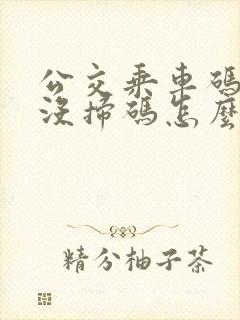 公交乘車碼
沒掃碼怎麼
精分柚子茶